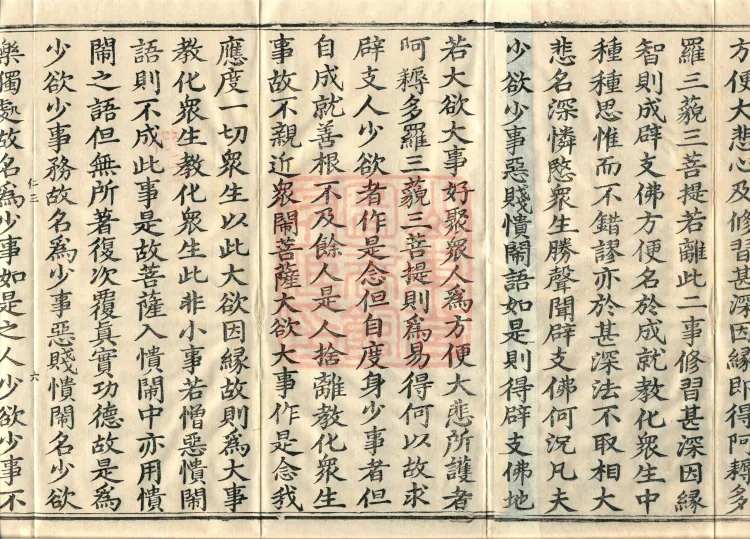 方便大悲心及修習甚深因緣即得阿耨多
羅三藐三菩提若離此二事修習甚深因緣
智則成辟支佛方便名於成就教化衆生中
種種思惟而不錯謬亦於甚深法不取相大
悲名深憐愍衆生勝聲聞辟支佛何況凡夫
少欲少事惡賤憒閙語如是則得辟支佛地
若大欲大事好聚衆人為方便大悲所護者
阿耨多羅三藐三菩提則為易得何以故求
辟支人少欲者作是念但自度身少事者但
自成就善根不及餘人是人捨離教化衆生
事故不親近衆閙菩薩大欲大事作是念我
應度一切衆生以此大欲因緣故則為大事
教化衆生教化衆生此非小事若憎惡憒閙
語則不成此事是故菩薩入憒閙中亦用憒
閙之語但無所著復次覆真實功德故是為
少欲少事務故名為少事惡賤憒閙名少欲
仁三
六
樂獨處故名為少事如是之人少欲少事不